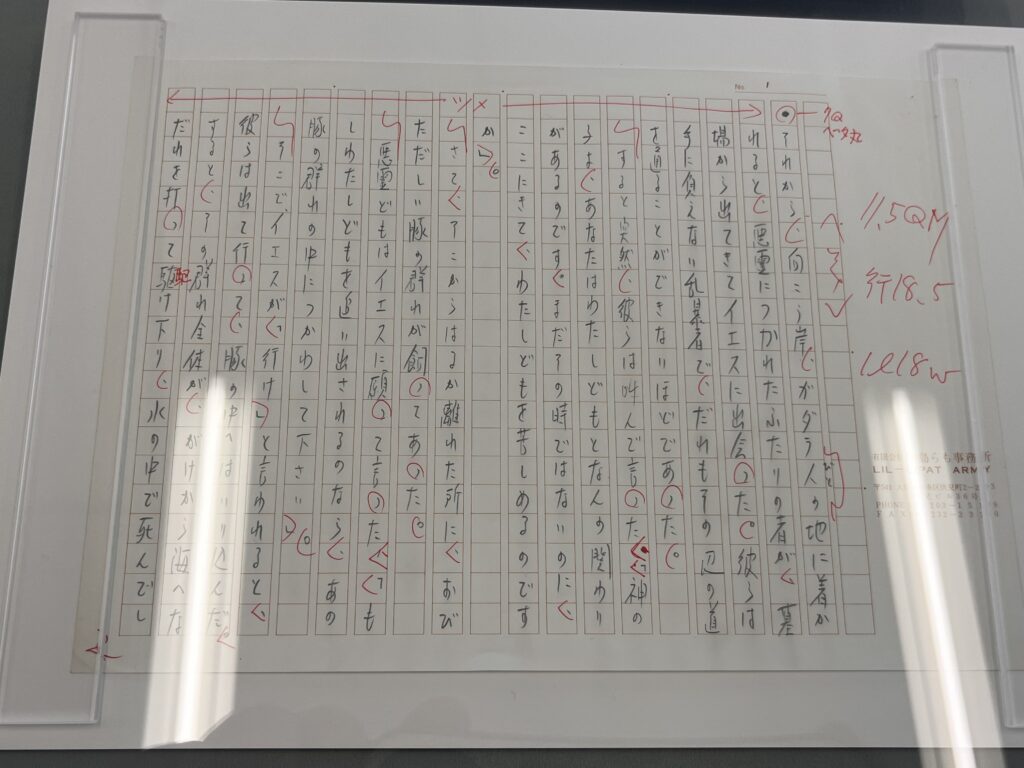 No. 1
それから、向こう岸、ガダラ人の地に着か
れると、悪霊につかれたふたりの者が、墓
場から出てきてイエスに出会った。彼らは
手に負えない乱暴者で、だれもその辺の道
を通ることができないほどであった。
すると突然、彼らは叫んで言った。「神の
子よ、あなたはわたしどもとなんの関わり
があるのです。まだその時ではないのに、
ここにきて、わたしどもを苦しめるのです
か」。
さて、そこからはるか離れた所に、おび
ただしい豚の群れが飼ってあった。
悪霊どもはイエスに願って言った、「も
しわたしどもを追い出されるのなら、あの
豚の群れの中につかわして下さい」。
そこで、イエスが「行け」と言われると、
彼らは出て行って、豚の中へはいり込んだ。
すると、その群れ全体が、がけから海へな
だれを打って駆け下り、水の中で死んでし
11.5QM
行18.5
1ℓ18w
らも事務所
LIL-PAT ARMY
PHONE
FAX